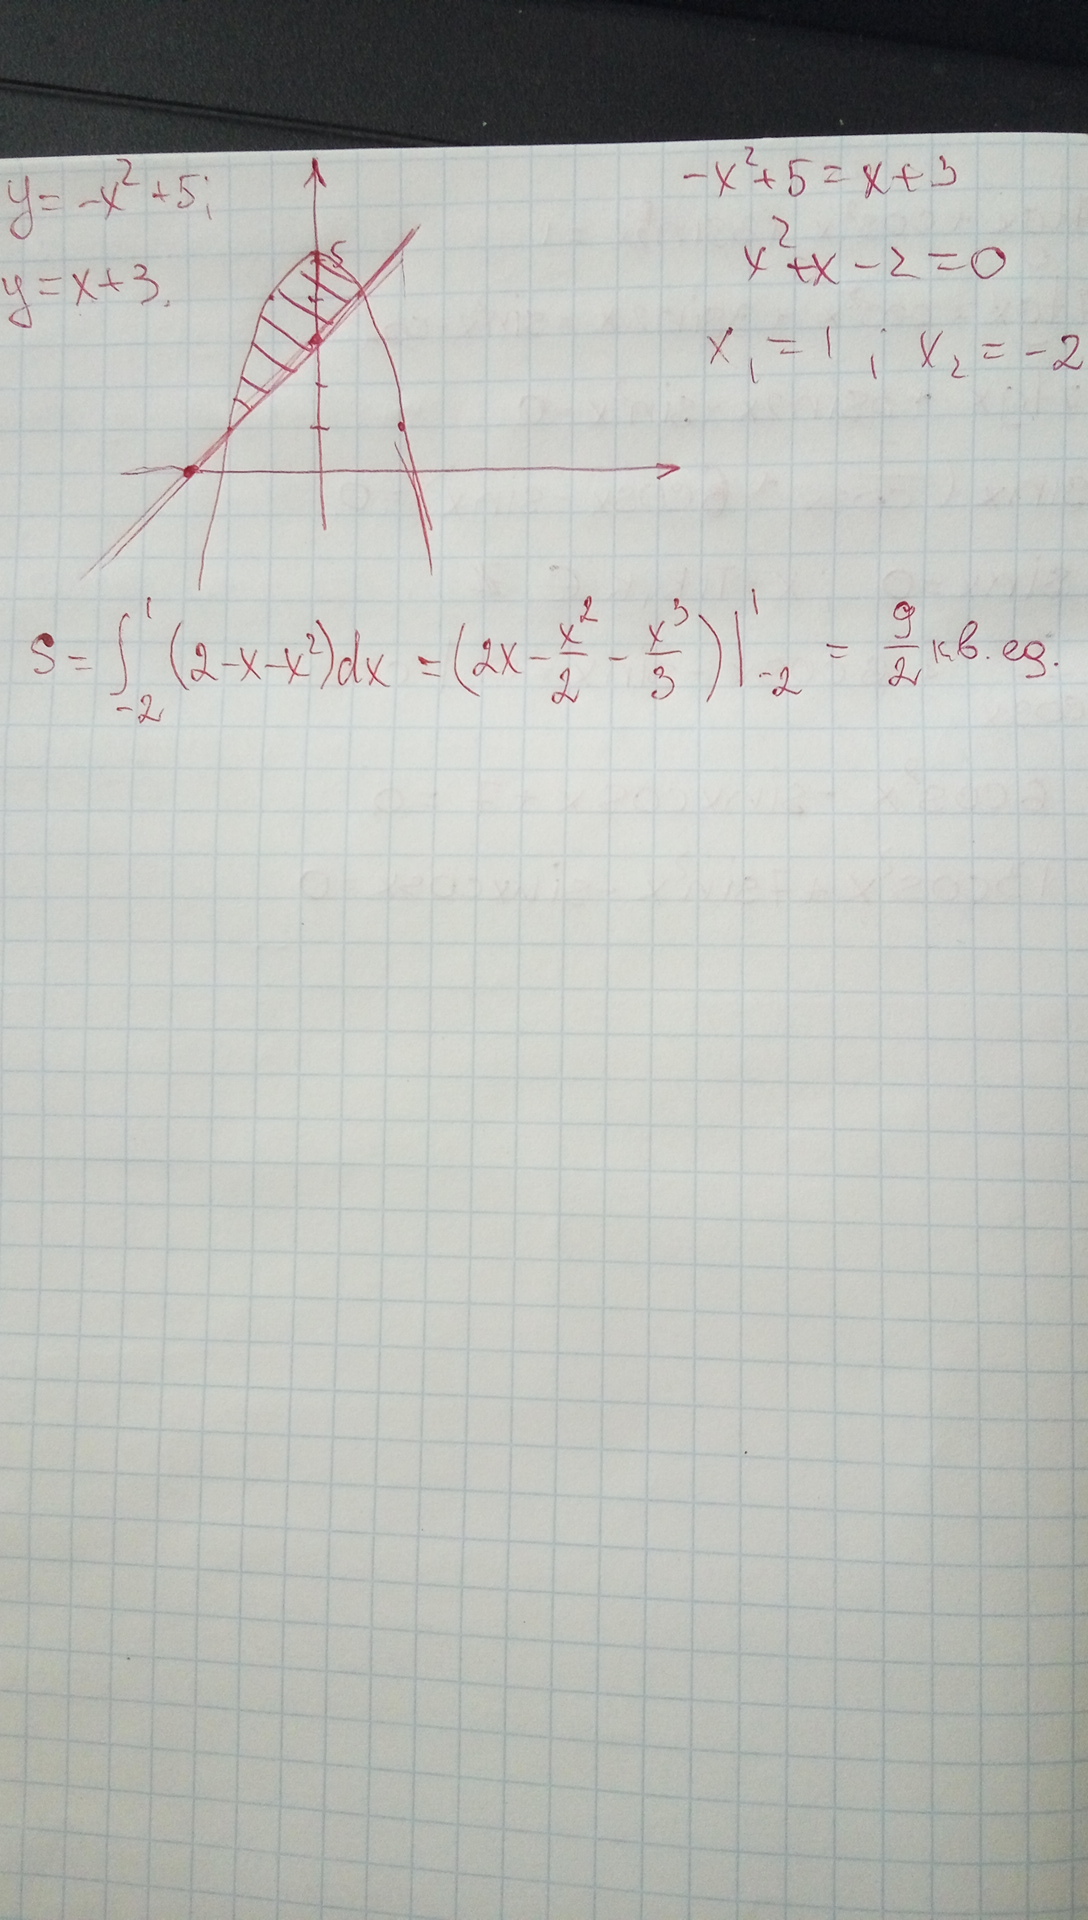 y = -x² + 5;
y = x + 3.
5
-x² + 5 = x + 3
x² + x - 2 = 0
x₁ = 1 ; x₂ = -2
S = ∫₋₂¹ (2 - x - x²) dx = (2x - x²/2 - x³/3) |₋₂¹ = 9/2 кв. ед.